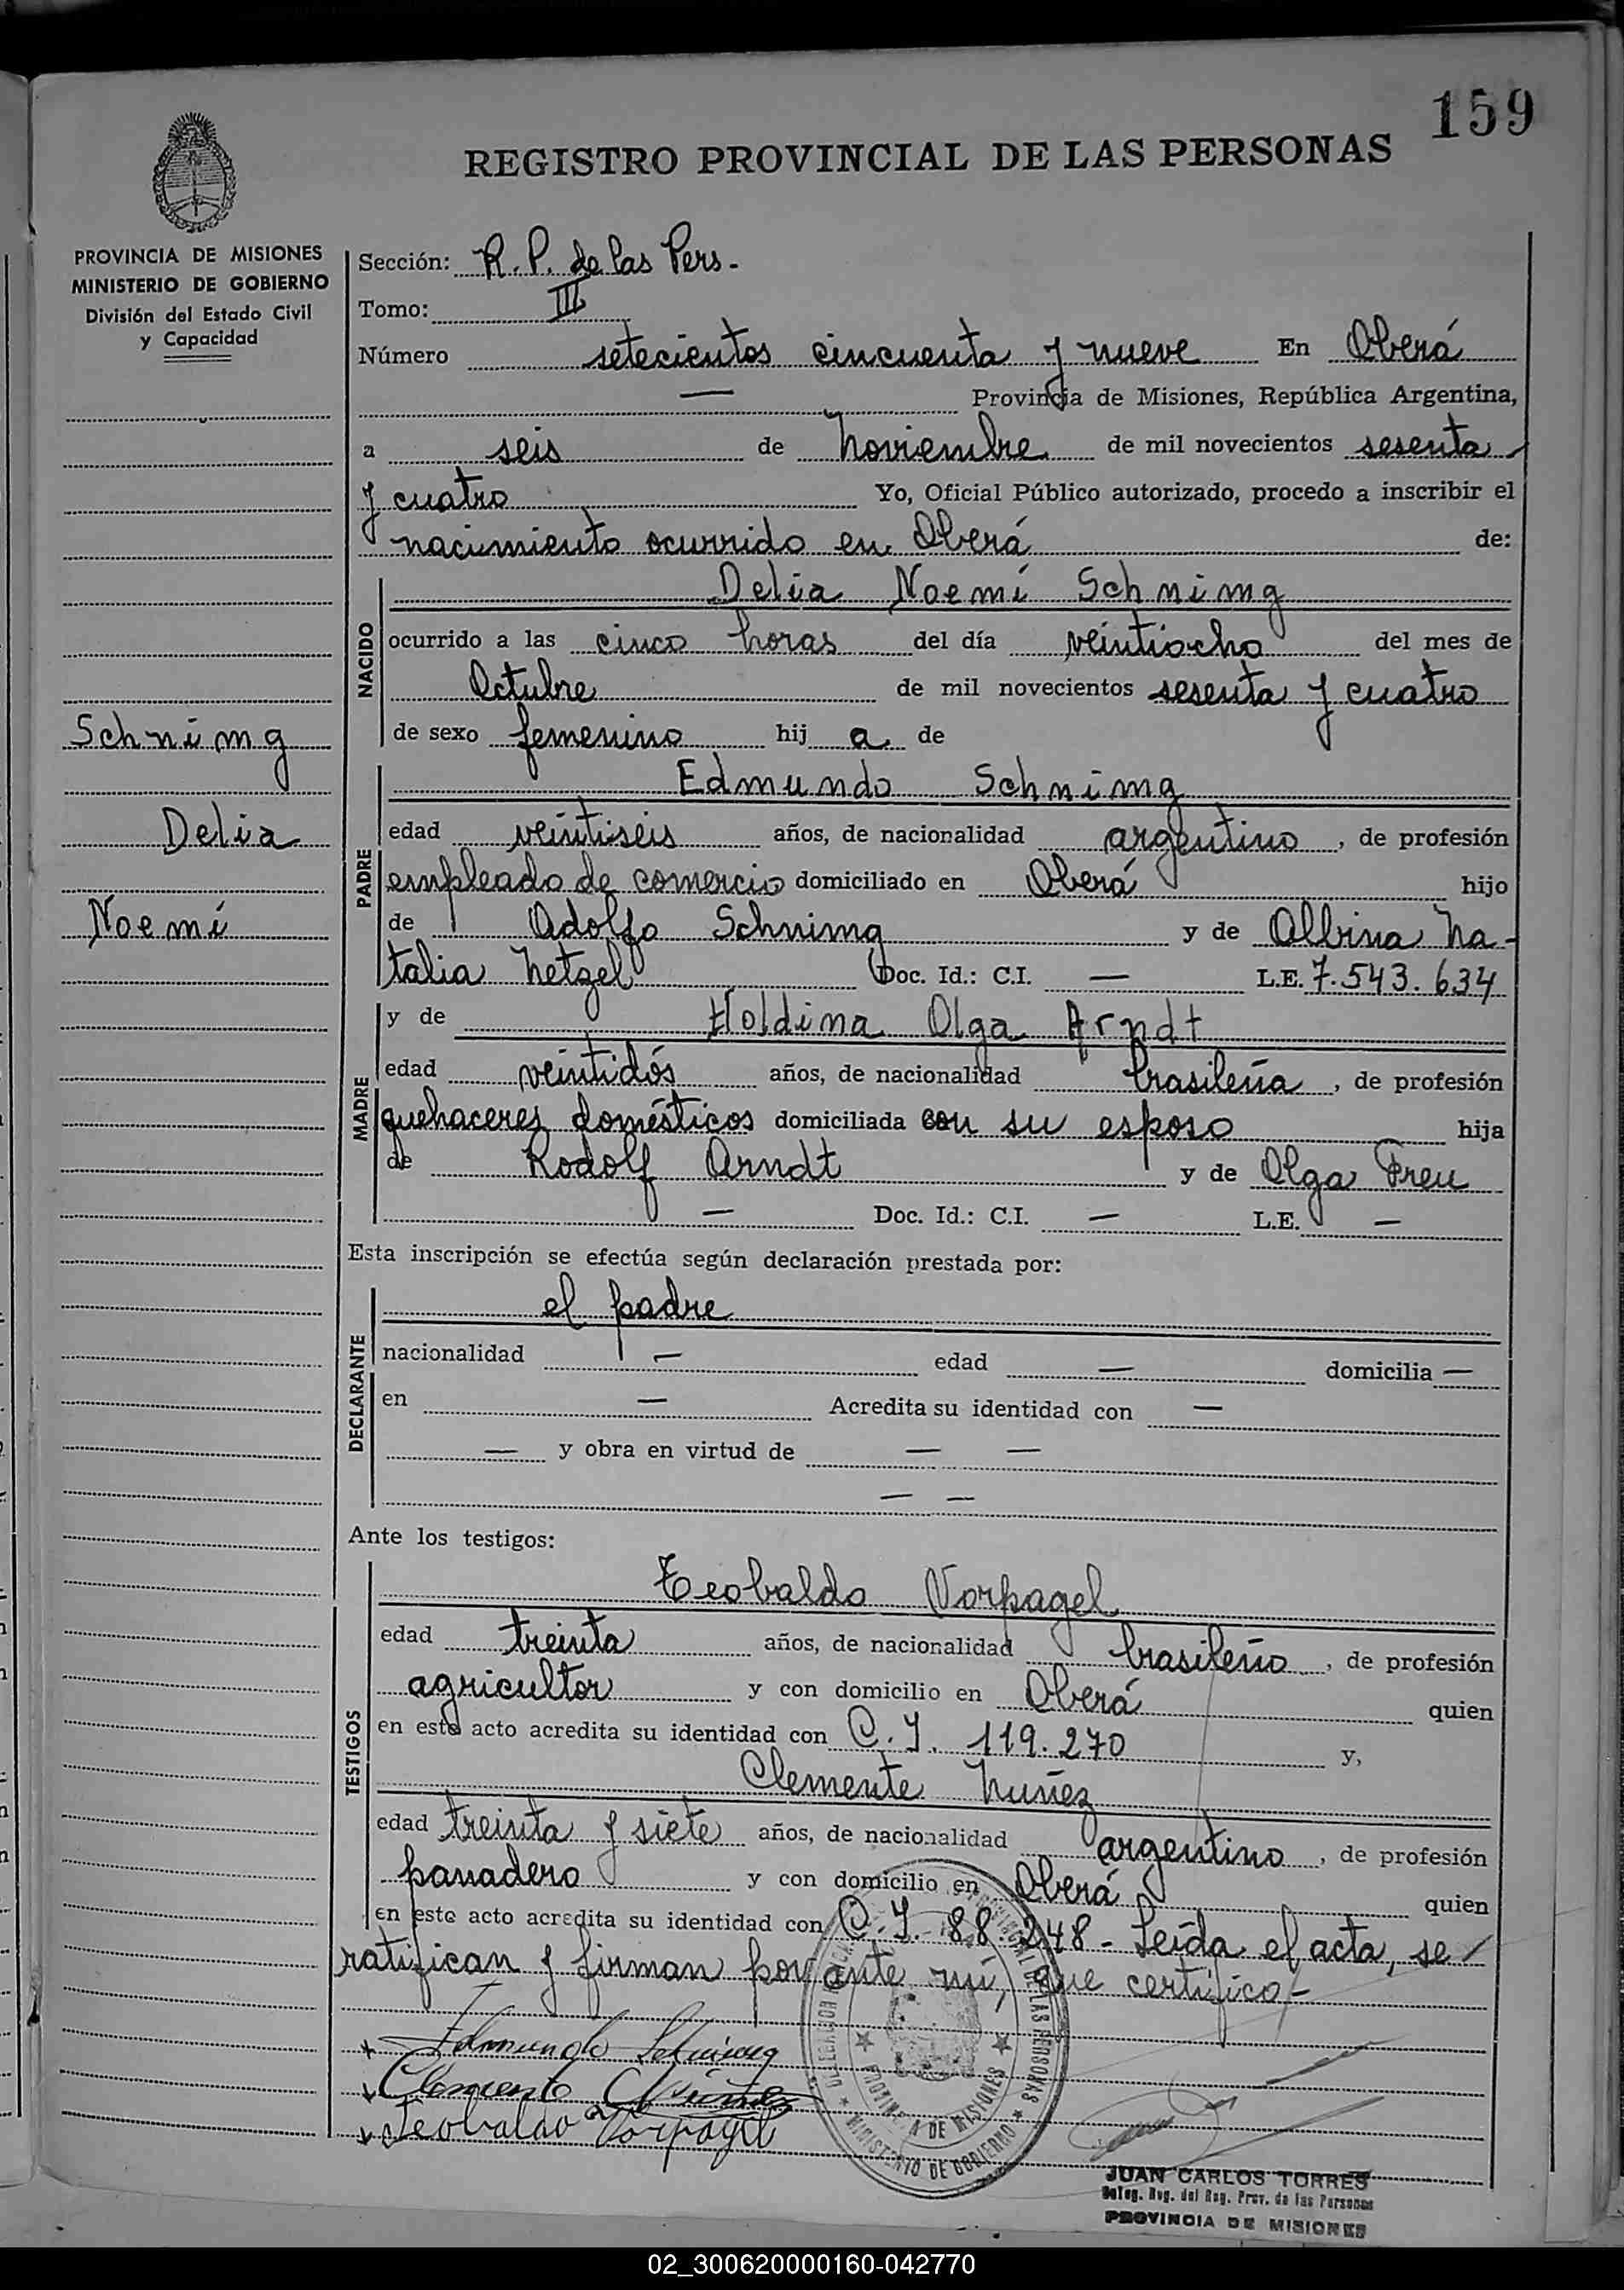 159
REGISTRO PROVINCIAL DE LAS PERSONAS
PROVINCIA DE MISIONES
MINISTERIO DE GOBIERNO
División del Estado Civil
y Capacidad
Schnimg
Delia
Noemí
Sección: R. P. de las Pers.-
Tomo: III
Número setecientos cincuenta y nueve En Oberá
— Provincia de Misiones, República Argentina,
a seis de Noviembre de mil novecientos sesenta
y cuatro Yo, Oficial Público autorizado, procedo a inscribir el
nacimiento ocurrido en Oberá de:
NACIDO
Delia Noemí Schnimg
ocurrido a las cinco horas del día veintiocho del mes de
Octubre de mil novecientos sesenta y cuatro
de sexo femenino hij a de
PADRE
Edmundo Schnimg
edad veintiseis años, de nacionalidad argentino, de profesión
empleado de comercio domiciliado en Oberá hijo
de Adolfo Schnimg y de Albina Na-
talia Netzel Doc. Id.: C.I. — L.E. 7.543.634
MADRE
y de Holdina Olga Arndt
edad veintidós años, de nacionalidad brasileña, de profesión
quehaceres domésticos domiciliada con su esposo hija
de Rodolf Arndt y de Olga Freu
— Doc. Id.: C.I. — L.E. —
Esta inscripción se efectúa según declaración prestada por:
DECLARANTE
el padre
nacionalidad — edad — domicilia —
en — Acredita su identidad con —
— y obra en virtud de — —
— —
Ante los testigos:
TESTIGOS
Teobaldo Vorpagel
edad treinta años, de nacionalidad brasileño, de profesión
agricultor y con domicilio en Oberá quien
en este acto acredita su identidad con C.I. 119.270 y,
Clemente Nuñez
edad treinta y siete años, de nacionalidad argentino, de profesión
panadero y con domicilio en Oberá quien
en este acto acredita su identidad con C.I. 88.248 - Leída el acta, se
ratifican y firman por ante mí, que certifico.-
Edmundo Schnimg
Clemente Nuñez
Teobaldo Vorpagel
PROVINCIA DE MISIONES
MINISTERIO DE GOBIERNO
DE LAS PERSONAS
JUAN CARLOS TORRES
Deleg. Reg. del Reg. Prov. de las Personas
PROVINCIA DE MISIONES
02_300620000160-042770